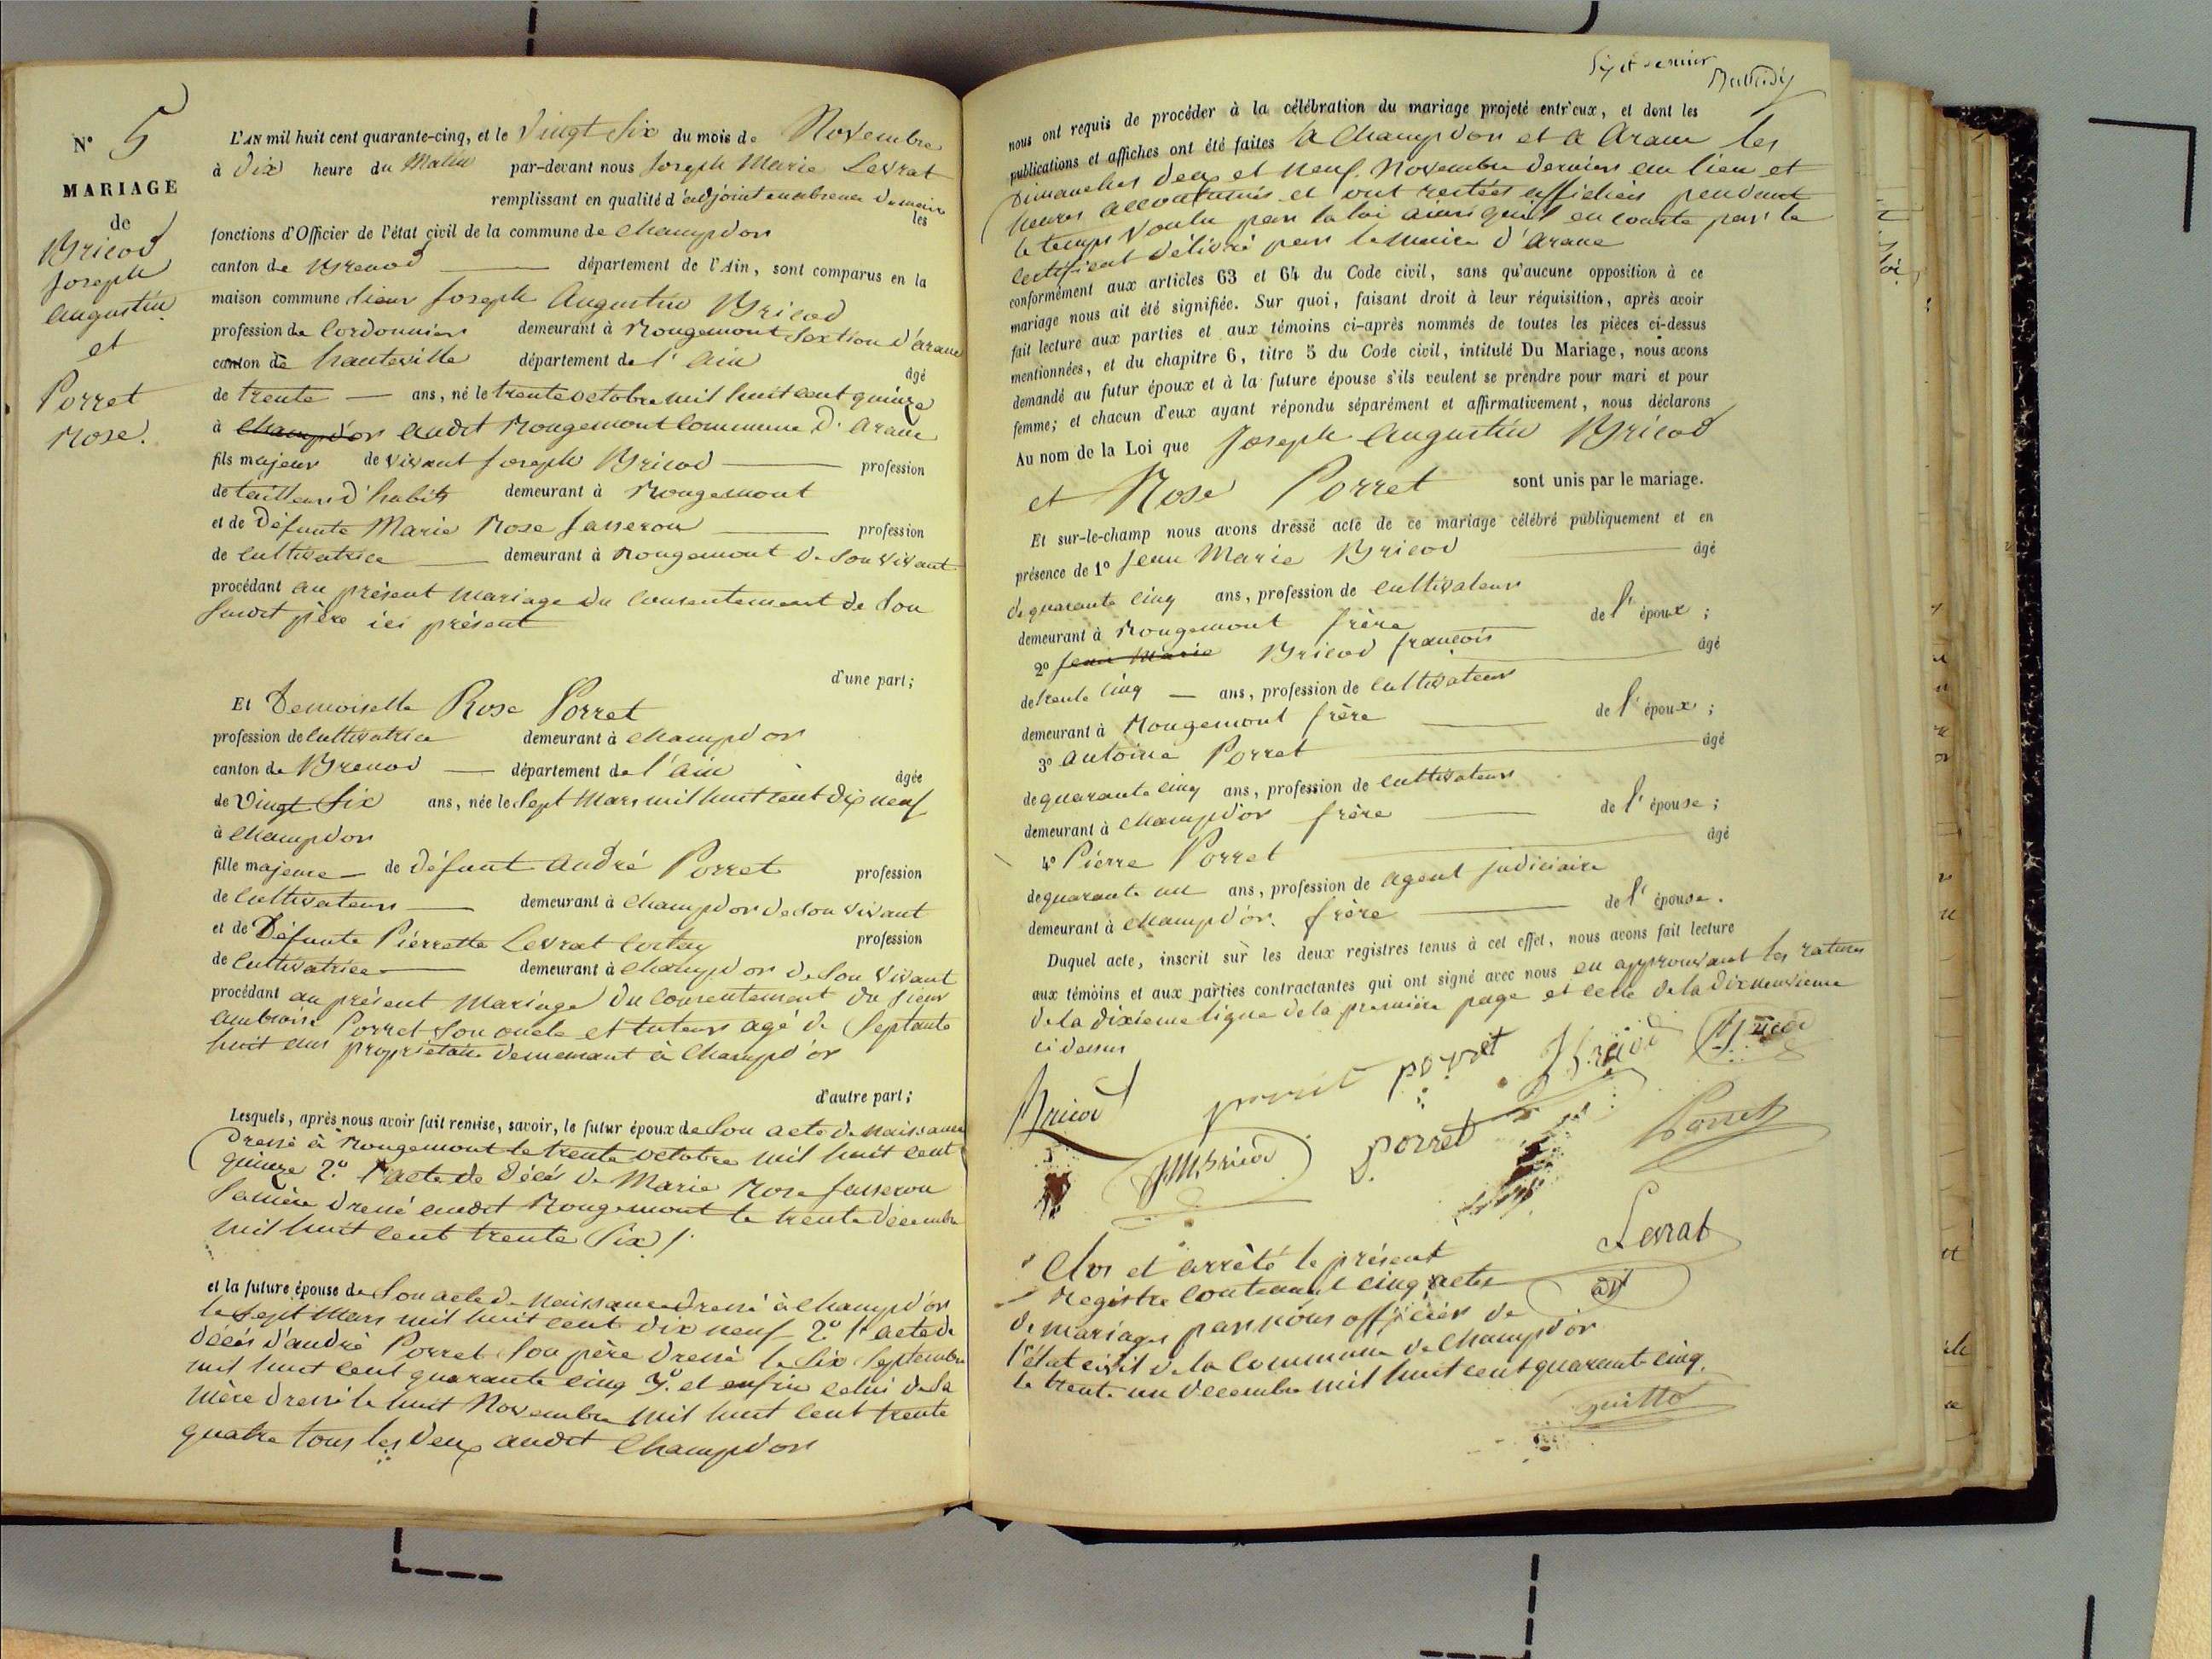 N° 5
MARIAGE
de
Bricod
Joseph
augustin
et
Porret
Rose.
L'AN mil huit cent quarante-cinq, et le vingt Six du mois de Novembre
à Dix heure du Matin par-devant nous Joseph Marie Levrat
remplissant en qualité d'adjoint en absence du maire les
fonctions d'Officier de l'état civil de la commune de champdor
canton de Brenod département de l'Ain, sont comparus en la
maison commune Sieur Joseph Augustin Bricod
profession de Cordonnier demeurant à Rougemont Section d'arane
canton de hauteville département de l'ain âgé
de trente ans, né le trente octobre mil huit cent quinze
à champd'or audit Rougemont Commune d'arane
fils majeur de vivant Joseph Bricod profession
de tailleur d'habits demeurant à Rougemont
et de Défunte Marie Rose Jasseron profession
de cultivatrice demeurant à Rougemont de Son vivant
procédant au présent mariage du Consentement de Son
Susdit père ici présent
d'une part;
Et Demoiselle Rose Porret
profession de Cultivatrice demeurant à champdor
canton de Brenod département de l'ain âgée
de vingt Six ans, née le Sept Mars mil huit cent dix neuf
à champdor
fille majeure de défunt André Porret profession
de Cultivateur demeurant à champdor de son vivant
et de Défunte Pierrette Levrat profession
de Cultivatrice demeurant à champdor de Son vivant
procédant au présent Mariage du Consentement du Sieur
ambroise Porret Son oncle et tuteur agé de Septante
huit ans propriétaire demeurant à Champd'or
d'autre part;
Lesquels, après nous avoir fait remise, savoir, le futur époux de Son acte de naissance
dressé à Rougemont le trente octobre mil huit cent
quinze 2.° l'acte de décès de Marie Rose Jasseron
Sa mère dressé audit Rougemont le trente Décembre
mil huit cent trente Six
et la future épouse de Son acte de Naissance dressé à Champd'or
le Sept Mars mil huit cent dix neuf 2.° l'acte de
décés d'andré Porret Son père dressé le Six Septembre
mil huit cent quarante cinq 3.° et enfin celui de Sa
mère dressé le huit Novembre mil huit cent trente
quatre tous les deux audit Champdor
nous ont requis de procéder à la célébration du mariage projeté entr'eux, et dont les
publications et affiches ont été faites à Champdor et à Arane les
Dimanches deux et neuf Novembre derniers au lieu et
heures accoutumés et ont restées affichées pendant
le temps voulu par la loi ainsi qu'il en conste par le
Certificat délivré par le maire d'arane
conformément aux articles 63 et 64 du Code civil, sans qu'aucune opposition à ce
mariage nous ait été signifiée. Sur quoi, faisant droit à leur réquisition, après avoir
fait lecture aux parties et aux témoins ci-après nommés de toutes les pièces ci-dessus
mentionnées, et du chapitre 6, titre 5 du Code civil, intitulé Du Mariage, nous avons
demandé au futur époux et à la future épouse s'ils veulent se prendre pour mari et pour
femme; et chacun d'eux ayant répondu séparément et affirmativement, nous déclarons
Au nom de la Loi que Joseph Augustin Bricod
et Rose Porret sont unis par le mariage.
Et sur-le-champ nous avons dressé acte de ce mariage célébré publiquement et en
présence de 1° Jean Marie Bricod âgé
de quarante cinq ans, profession de cultivateur
demeurant à Rougemont frère de l'époux;
2° Jean Marie Bricod françois âgé
de trente cinq ans, profession de Cultivateur
demeurant à Rougemont frère de l'époux;
3° Antoine Porret âgé
de quarante cinq ans, profession de cultivateur
demeurant à champd'or frère de l'épouse;
4° Pierre Porret âgé
de quarante un ans, profession de agent judiciaire
demeurant à champd'or frère de l'épouse.
Duquel acte, inscrit sur les deux registres tenus à cet effet, nous avons fait lecture
aux témoins et aux parties contractantes qui ont signé avec nous en approuvant les ratures
de la dixième ligne de la première page et celle de la dixneuvième
ci dessus
Bricod porret porret Bricod Bricod
JM Bricod porret Porret
Levrat
adt
Clos et arrêté le présent
Registre Contenant cinq actes
de mariages par nous officier de
l'état civil de la Commune de Champdor
le trente un decembre mil huit cent quarante cinq.